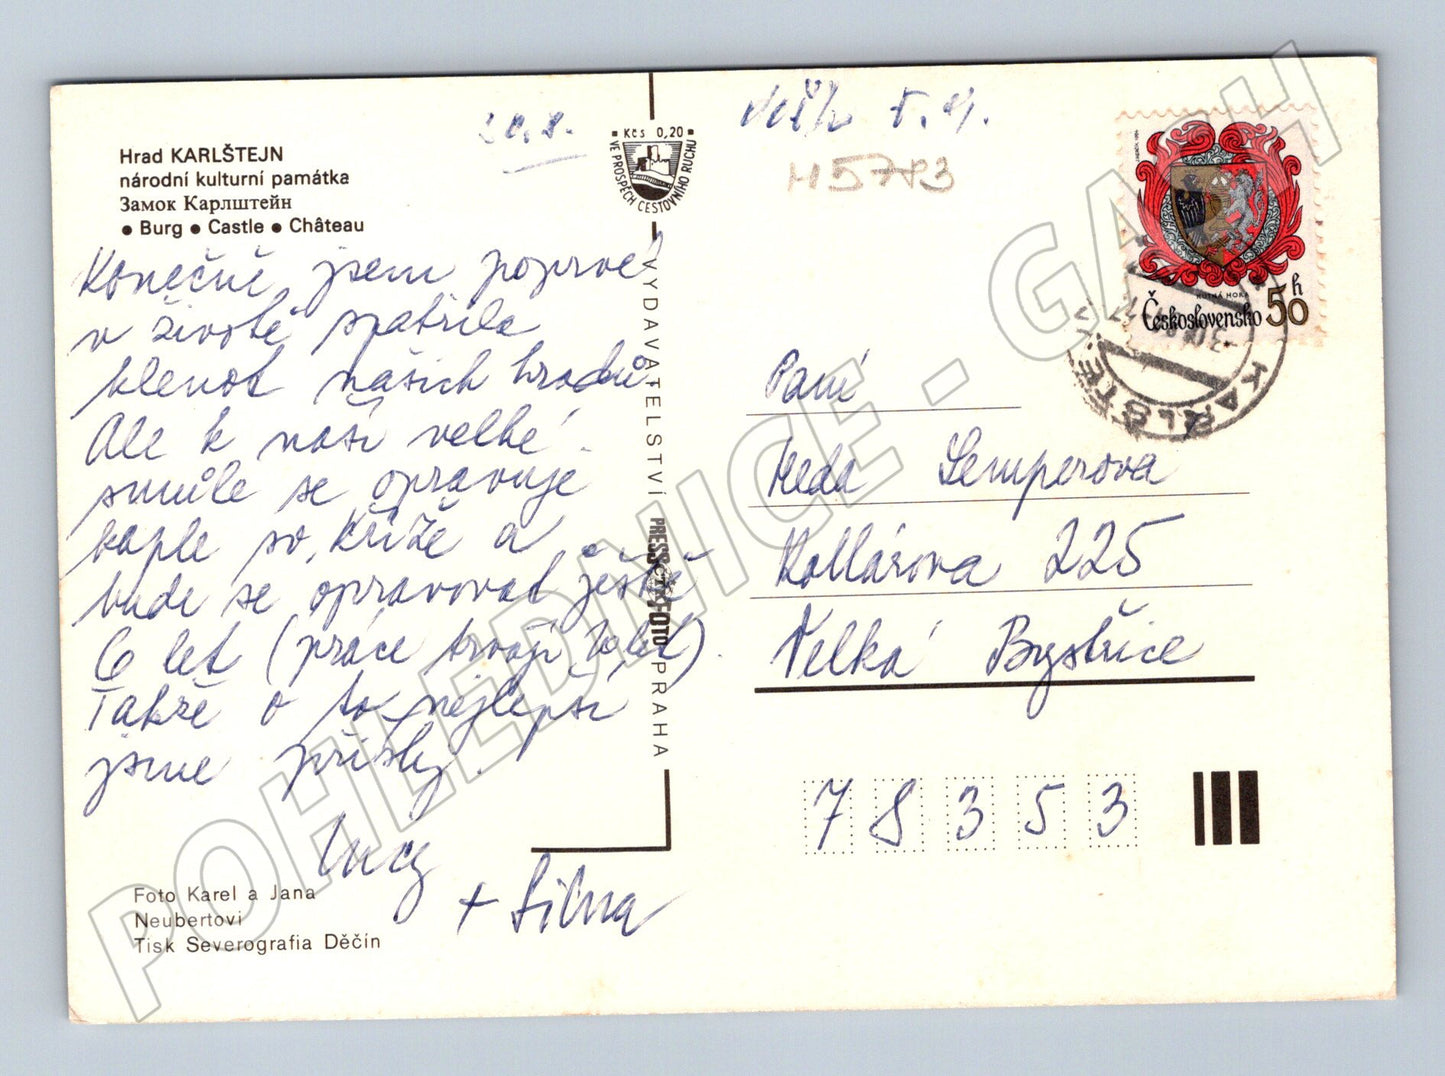 Hrad KARLŠTEJN
národní kulturní památka
Замок Карлштейн
● Burg ● Castle ● Château
20.8.
Konečně jsem poprvé
v životě spatřila
klenot našich hradů.
Ale k naší velké
smůle se opravuje
kaple sv. Kříže a
bude se opravovat ještě
6 let (práce trvají 20 let).
Takže o to nejlepší
jsme přišly.
Lucy
+ Silva
Foto Karel a Jana
Neubertovi
Tisk Severografia Děčín
Kčs 0,20
VE PROSPĚCH CESTOVNÍHO RUCHU
VYDAVATELSTVÍ PRESSFOTO PRAHA
H5793
KUTNÁ HORA
Československo 50 h
KARLŠTEJN
Paní
Heda Semperova
Kollárova 225
Velká Bystřice
78353
POHLEDNICE - GASH